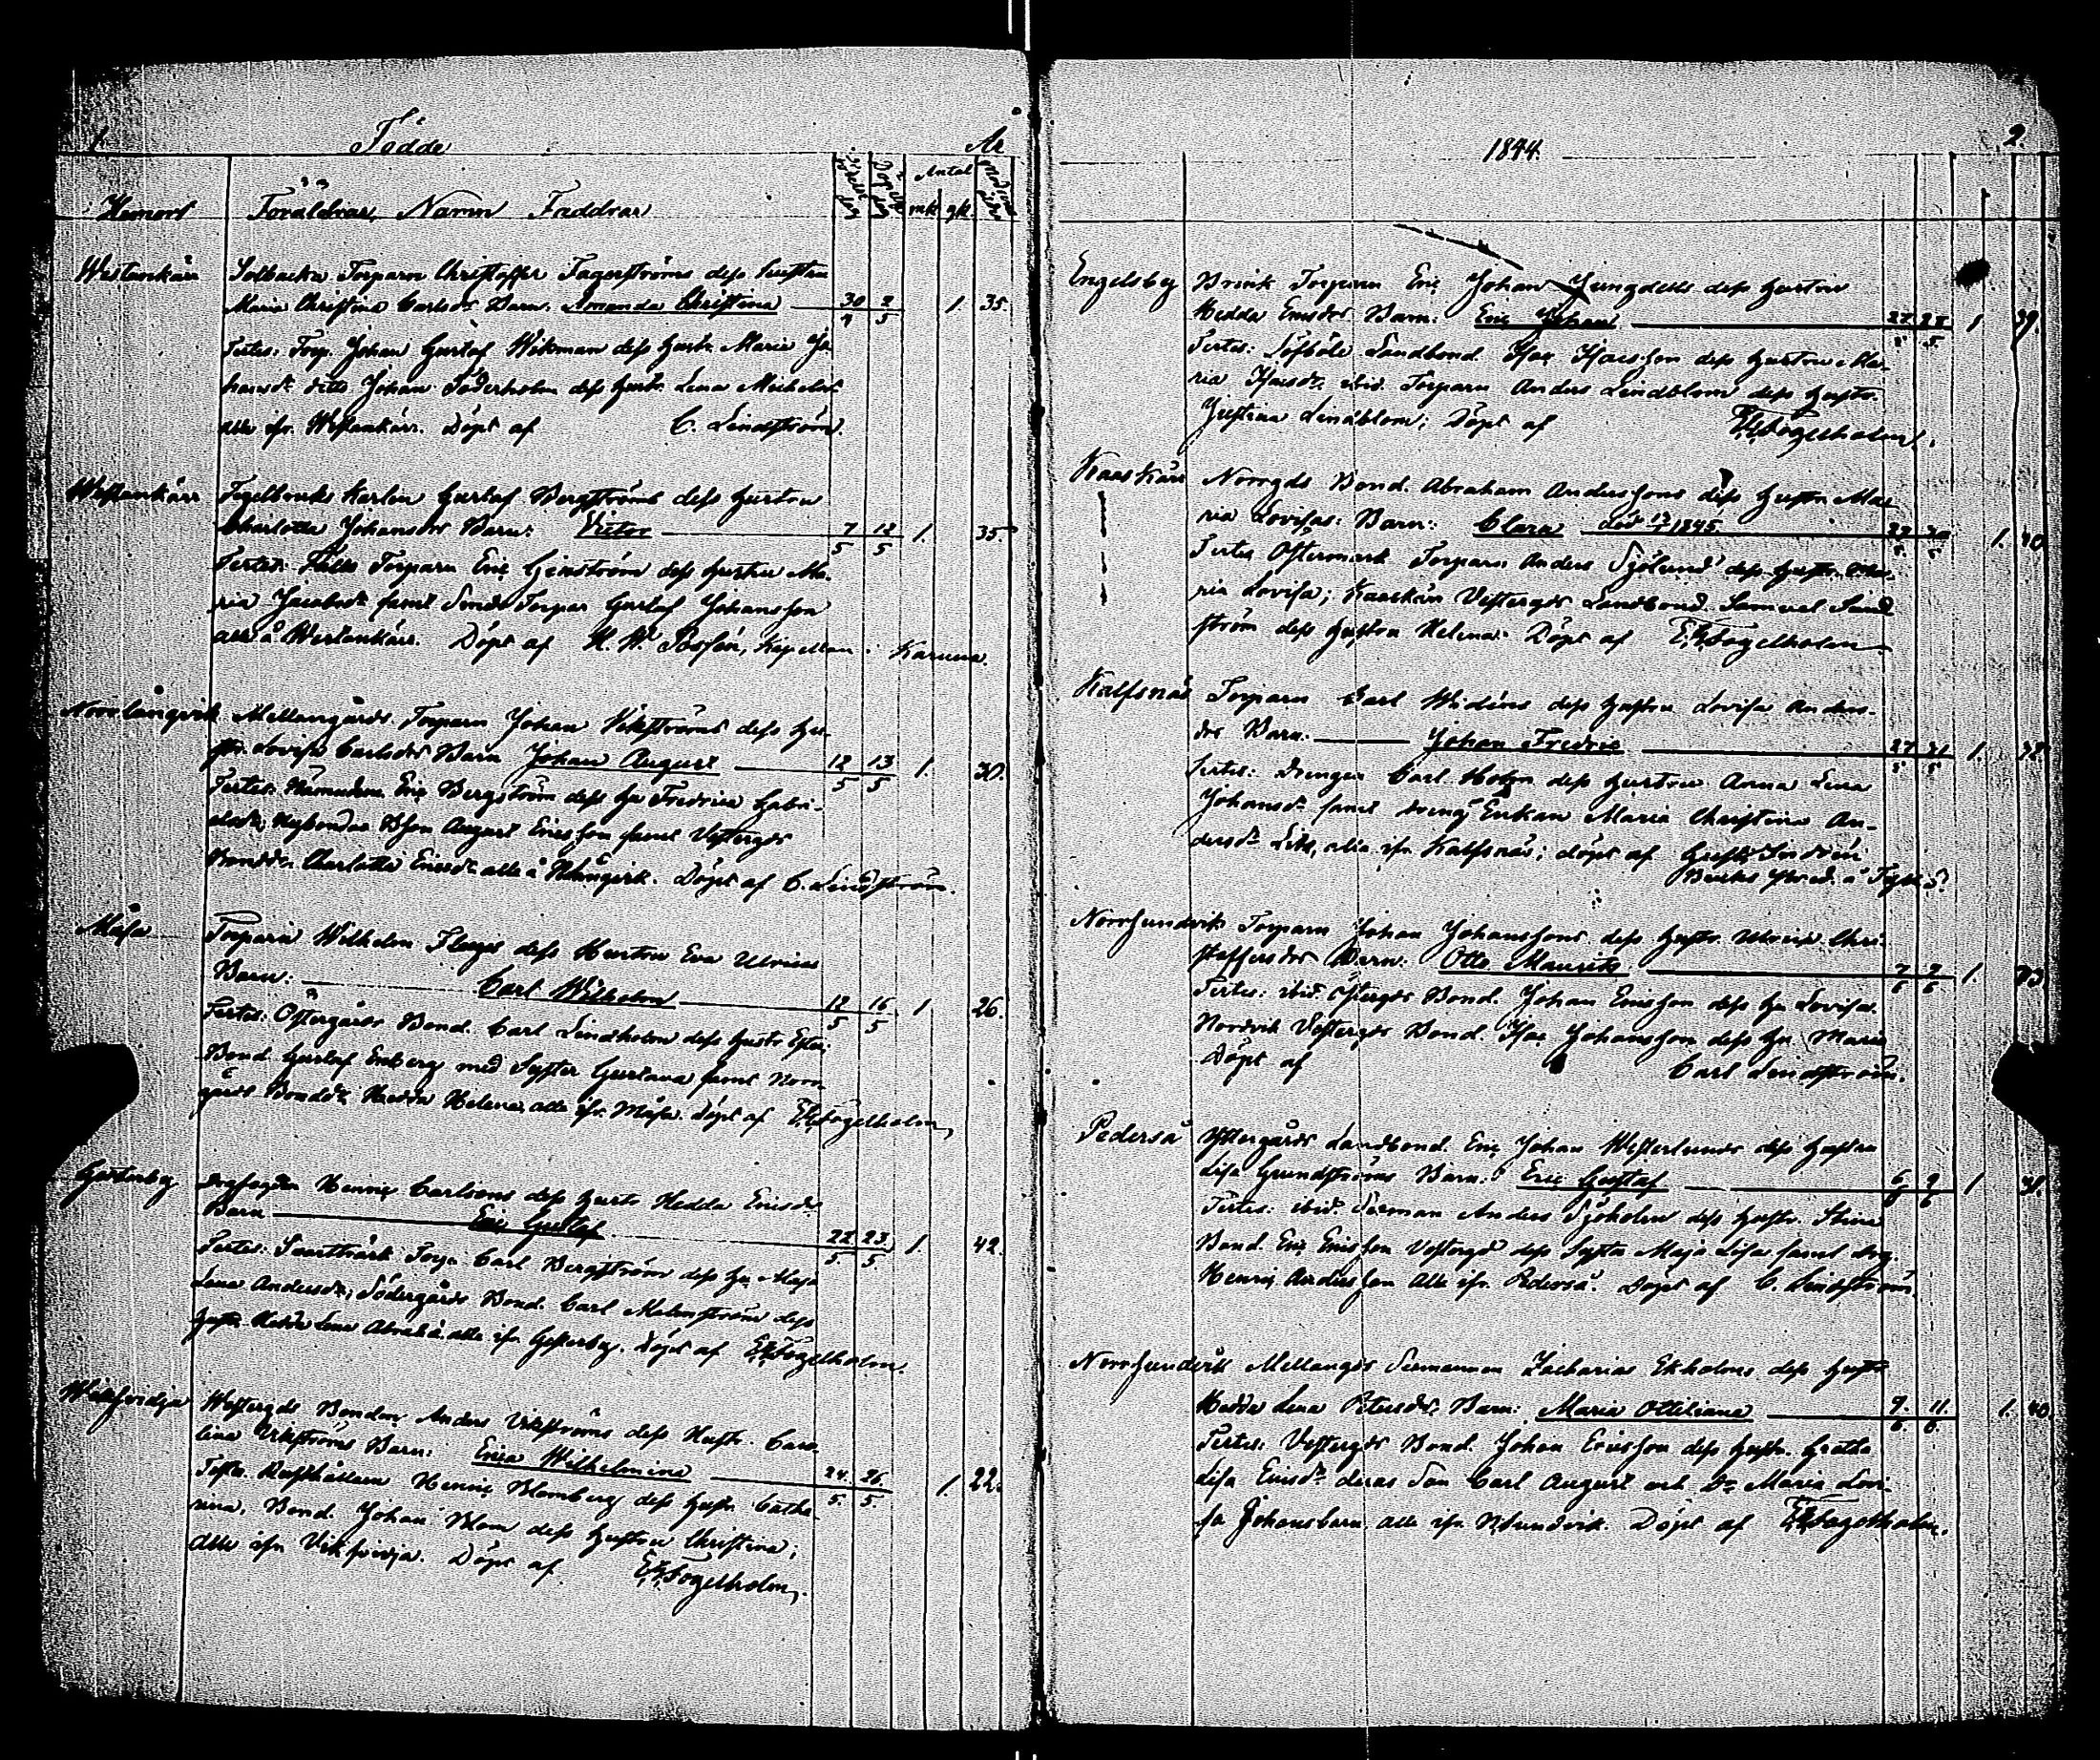 1. Födde År
Hemort Föräldrar, Namn Faddrar Födelse dag Döpelse dag Antal mk qk Modrens ålder
Westankärr Solbacka Torparn Christoffer Fagerströms dess hustru
Maria Christina Carlsdr Barn: Amanda Christina 30/4 2/5 1. 35.
Testes: Torp. Johan Gustaf Wikman dess hustr. Maria Jo-
hansdr ditto Johan Söderholm dess hustr. Lena Michelsdr
alla ifr. Westankärr. Döpt af C. Lindström.
Westankärr Tegelbruks Karlen Gustaf Bergströms dess hustru
Charlotta Johansdrs Barn: Victor 7/5 12/5 1. 35.
Testes: Torparn Eric dess hustru Ma-
ria Jacobsdr samt Torpar Gustaf Johansson
alla å Westankärr. Döpt af Kapellan i Karuna.
Norrlångvik Mellangårds Torparn Johan Vikströms dess hu-
str. Lovisa Carlsdrs Barn Johan August 12/5 13/5 1. 30.
Testes: Nämndem. Eric Bergström dess hu Fredrica Gabri-
elsdr; August Ericsson samt Vestergds
Charlotta Ericsdr alla å Nlångvik. Döpt af C. Lindström.
Måsa Torparn Wilhelm dess Hustru Eva Ulricas
Barn: Carl Wilhelm 12/5 16/5 1 26.
Testes: Östergårds Bond. Carl Lindholm dess hustr
Bond. Gustaf Enberg med Syster Gustava samt Norr-
gårds Bonddr Hedda Helena, alla ifr. Måsa. Döpt af E.G. Fogelholm,
Henric Carlsons dess hustr Hedda Ericsdr
Barn Eric Gustaf 22/5 23/5 1. 42.
Testes: Torp. Carl Bergström dess hu Maja
Lena Andersdr; Södergårds Bond. Carl Malmström dess
hustr. Hedda Lena alla ifr. Döpt af E.G. Fogelholm.
Westergds Bonden Anders Vikströms dess Hustr. Caro-
lina Vikströms Barn: Erica Wilhelmina 24./5. 26./5. 1. 22.
Testes. Rusthållaren Henric Blomberg dess hustr. Catha-
rina, Bond. Johan Blom dess hustru Christina;
Alla ifr. Döpt af E.G. Fogelholm,
1844. 2.
Engelsby Brink Torparn Eric Johan Ljungdells dess hustru
Hedda Ericsdrs Barn: Eric Johan 27/5 28/5 1 39.
Testes: Söfböle Landbond. Isac Isacsson dess hustru Ma-
ria Isacsdr. ibid. Torparn Anders Lindblom dess hustr.
Justina Lindblom; Döpt af E.G. Fogelholm,
Kaaskärr Norrgds Bond. Abraham Anderssons dess hustru Ma-
ria Lovisas: Barn: Clara 1845. 1. 40
Testes Östermark Torparn Anders Sjölund dess hustr. Ma-
ria Lovisa; Kaaskärr Vestergds Landbond. Samuel Sand-
ström dess hustru Helena. Döpt af E.G. Fogelholm
Kalfsnäs Torparn Carl Widéns dess hustru Lovisa Anders-
drs Barn: Johan Fredric 27/5 31/5 1.
Testes: drengen Carl Holm dess hustru Anna Lena
Johansdr samt dreng Enkan Maria Christina An-
dersdr alla ifr Kalfsnäs; döpt af
Norrsundvik Torparn Johan Johanssons dess hustr. Ulrica Chri-
stoffersdrs Barn: Otto Maurits 7/6 9/6 1.
Testes: ibid. Östergds Bond. Johan Ericsson dess hu Lovisa.
Nordvik Vestergds Bond. Isac Johansson dess hu Maria
Döpt af Carl Lindström.
Pederså Yttergårds Landbond. Eric Johan Westerlunds dess hustru
Lisa Grundströms Barn: Eric Gustaf 6/6 9/6 1 31.
Testes: ibid. Seeman Anders Sjöholm dess hustr. Stina
Bond. Eric Ericsson Vestergd dess Syster Maja Lisa samt drg.
Henric Andersson Alla ifr. Pederså. Döpt af C. Lindström.
Norrsundvik Mellangds Seemannen Zacharias Ekholms dess hustr
Hedda Lena Petersdrs Barn: Maria Ottiliana 9./6. 11./6. 1. 40.
Testes: Vestergds Bond. Johan Ericsson dess hustr. Greta
Lisa Ericsdr. deras Son Carl August och Dr Maria Lovi-
sa Johansbarn, alla ifr N.sundvik. Döpt af E.G. Fogelholm.